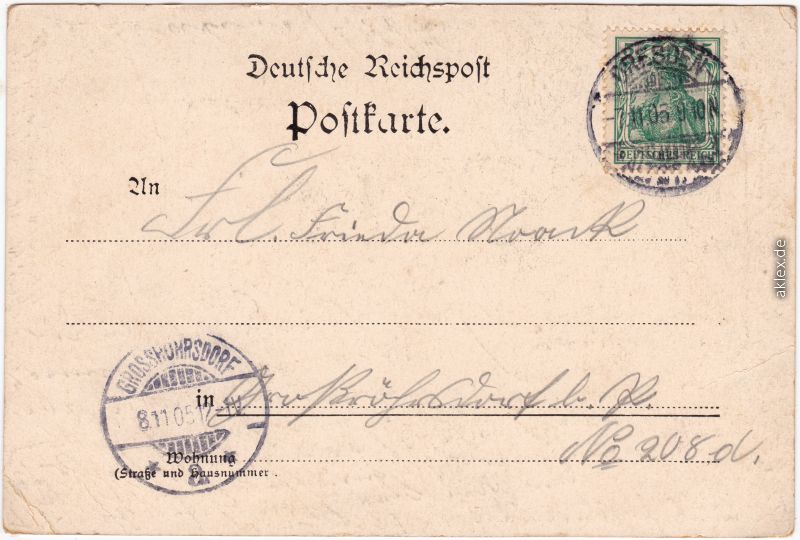 Deutsche Reichspost
Postkarte.
5
DEUTSCHES REICH
DRESDEN
11 05 9-10N
An
Frl. Frieda Noack
GROSSRÖHRSDORF
8.11 05 1
a
in Großröhrsdorf b. P.
No 208 d.
Wohnung
(Straße und Hausnummer
aklex.de